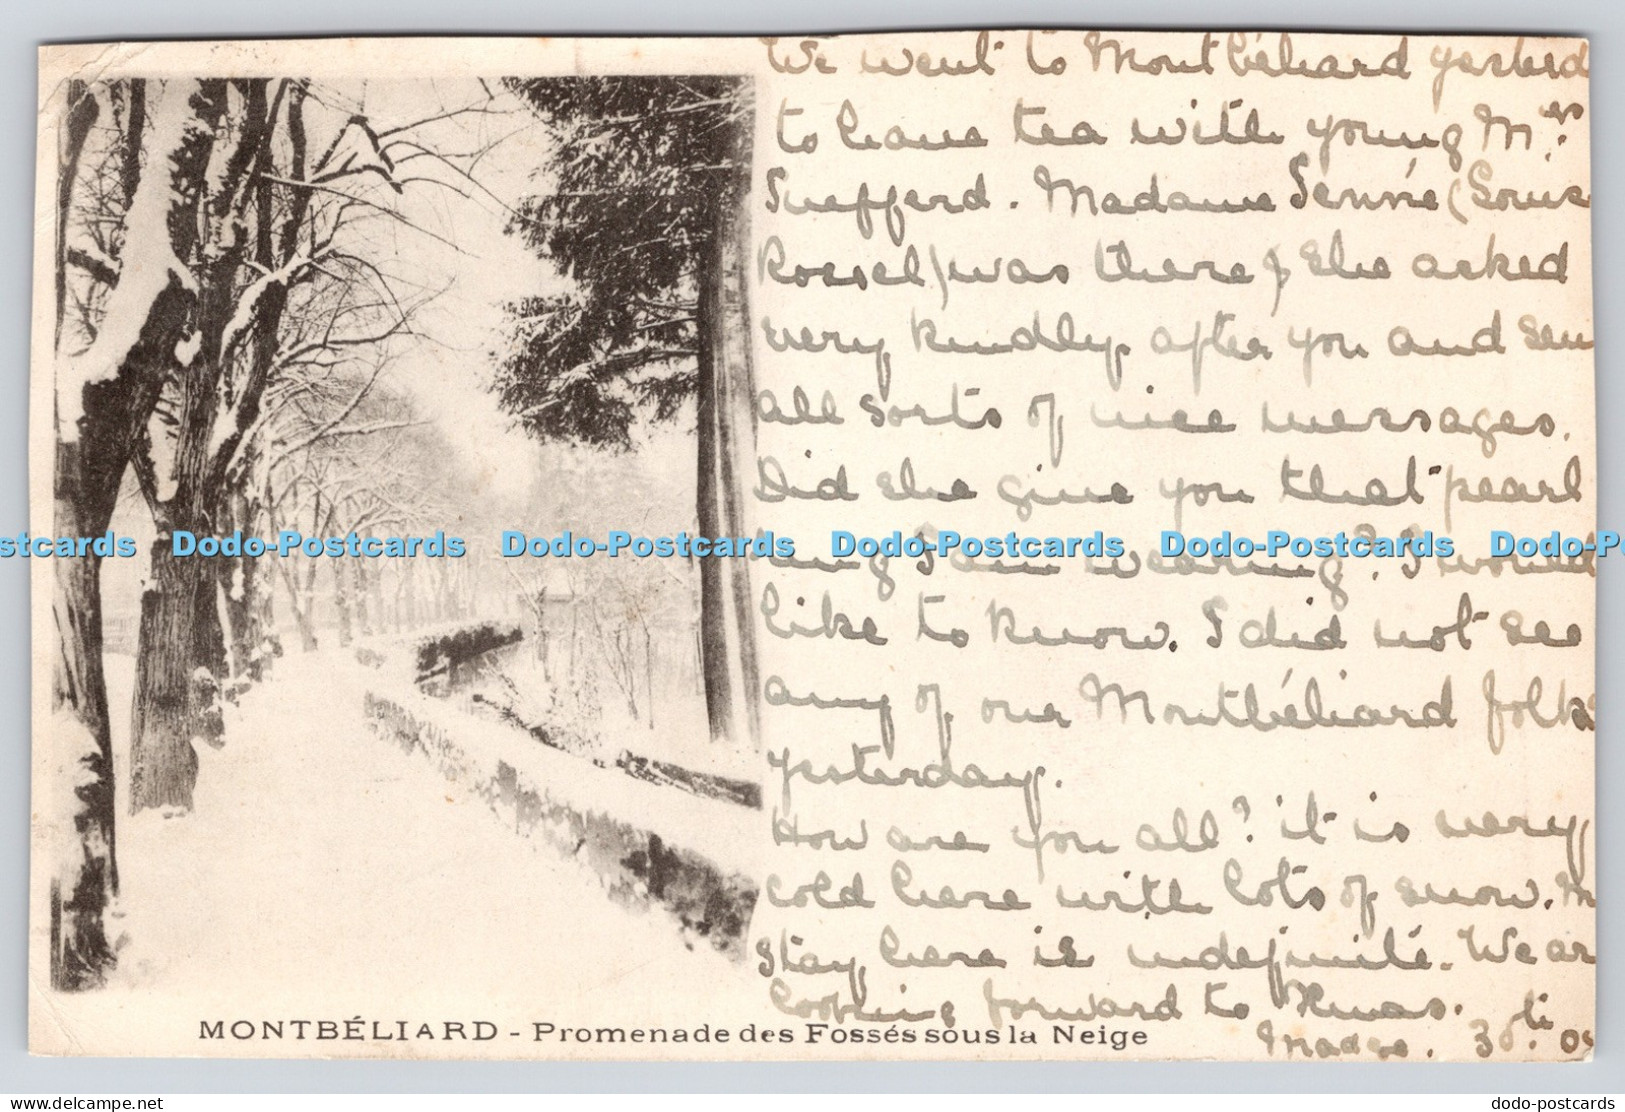 We went to Montbéliard yesterd
to have tea with young Mrs
Shefferd. Madame Senné (Louise
Rossel) was there & she asked
very kindly after you and sen
all sorts of nice messages.
Did she give you that pearl
ring I am wearing? I would
like to know. I did not see
any of our Montbéliard folks
yesterday.
How are you all? it is very
cold here with lots of snow. M
stay here is indefinite. We ar
looking forward to Xmas.
30th
MONTBÉLIARD - Promenade des Fossés sous la Neige
stcards Dodo-Postcards Dodo-Postcards Dodo-Postcards Dodo-Postcards Dodo-P
delcampe.net
dodo-postcards